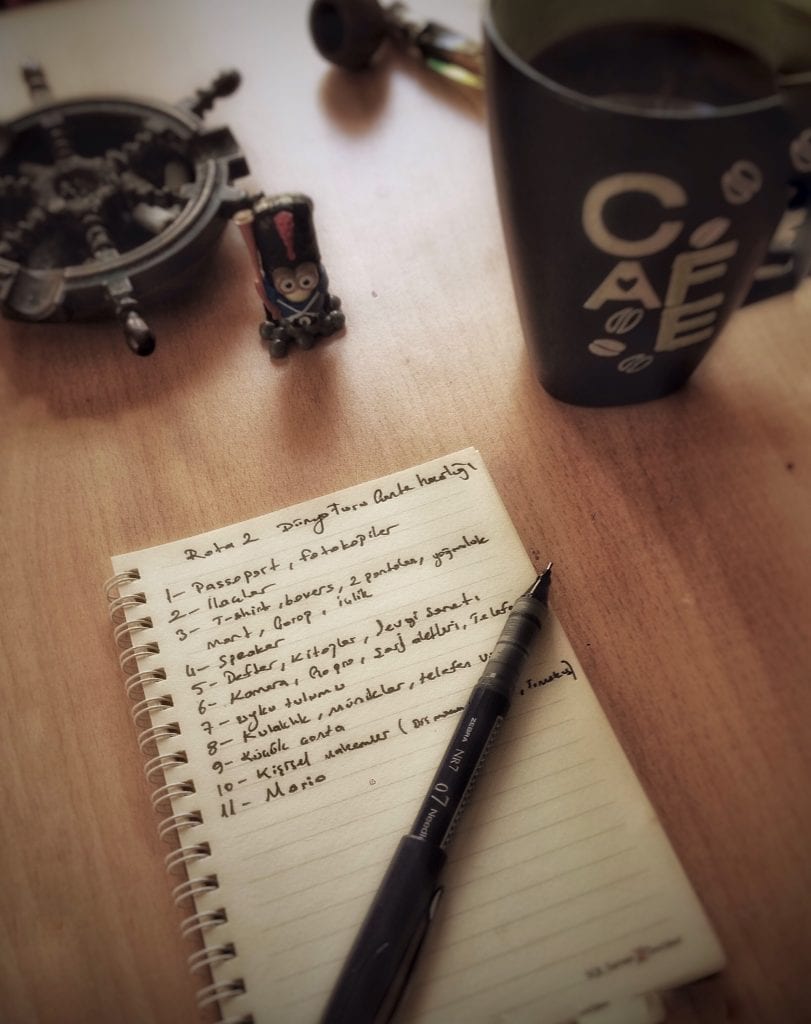 CAFE
Rota 2 Dünya Turu Çanta hazırlığı
1- Passaport, fotokopiler
2- İlaçlar
3- T-shirt, boxers, 2 pantolon, yağmurluk
mont, Çorap, içlik
4- Speaker
5- Defter, Kitaplar, Sevgi Sanatı
6- Kamera, Gopro, Şarj aletleri, Telefon
7- uyku tulumu
8- Kulaklık, müzikler, telefon
9- Küçük çanta
10- Kişisel malzemeler (
11- Mario
ZEBRA NR7 0.7 Needle
SQL Server